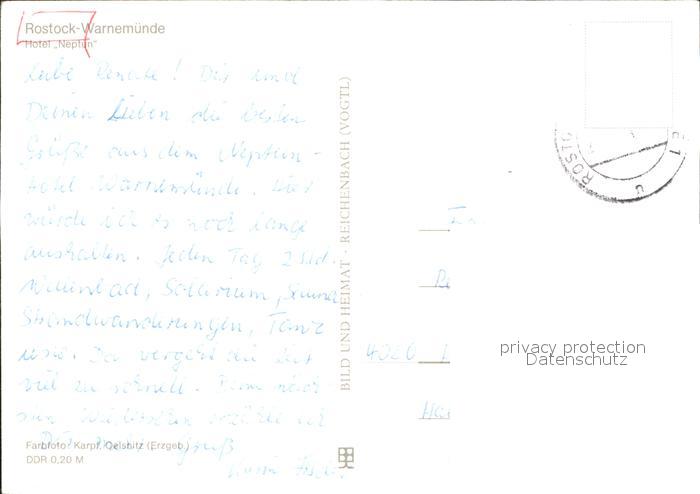 Rostock-Warnemünde
Hotel „Neptun"
Liebe Renate! Dir und
Deinen Lieben die besten
Grüße aus dem Neptun-
hotel Warnemünde. Hier
würde ich es noch lange
aushalten. Jeden Tag 2 Std.
Wellenbad, Solarium, Sauna
Strandwanderungen, Tanz
usw. Da vergeht die Zeit
viel zu schnell. Beim näch-
sten Wiedersehen erzähle ich
Dir mehr. Gruß
Farbfoto: Karpf, Oelsnitz (Erzgeb.)
DDR 0,20 M
BILD UND HEIMAT · REICHENBACH (VOGTL)
ROSTO
4020
privacy protection
Datenschutz